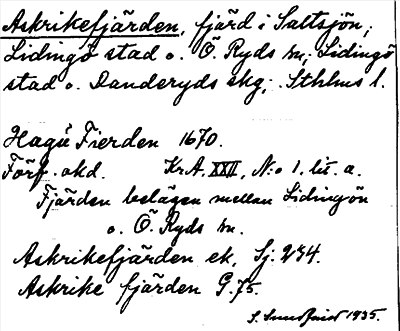 Askrikefjärden, fjärd i Saltsjön,
Lidingö stad o. Ö. Ryds sn; Lidingö
stad o. Danderyds skg; Sthlms l.
Hagu Fierden 1670.
Förf. okd. Kr.A. XXII, N:o 1. lit. a.
Fjärden belägen mellan Lidingön
o. Ö. Ryds sn.
Askrikefjärden ek. Sj. 234.
Askrike fjärden G. 75.
1935.